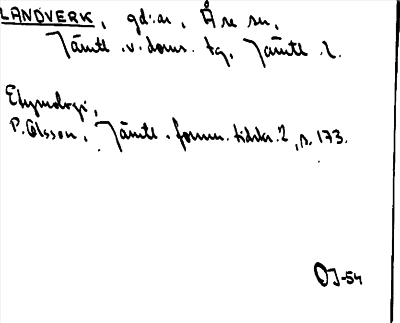 LANDVERK, gd:ar, Åre sn,
Jämtl. v. doms. tg, Jämtl. l.
Etymologi,
P. Olsson, Jämtl. fornm. tidskr. 2, s. 173.
OJ-54